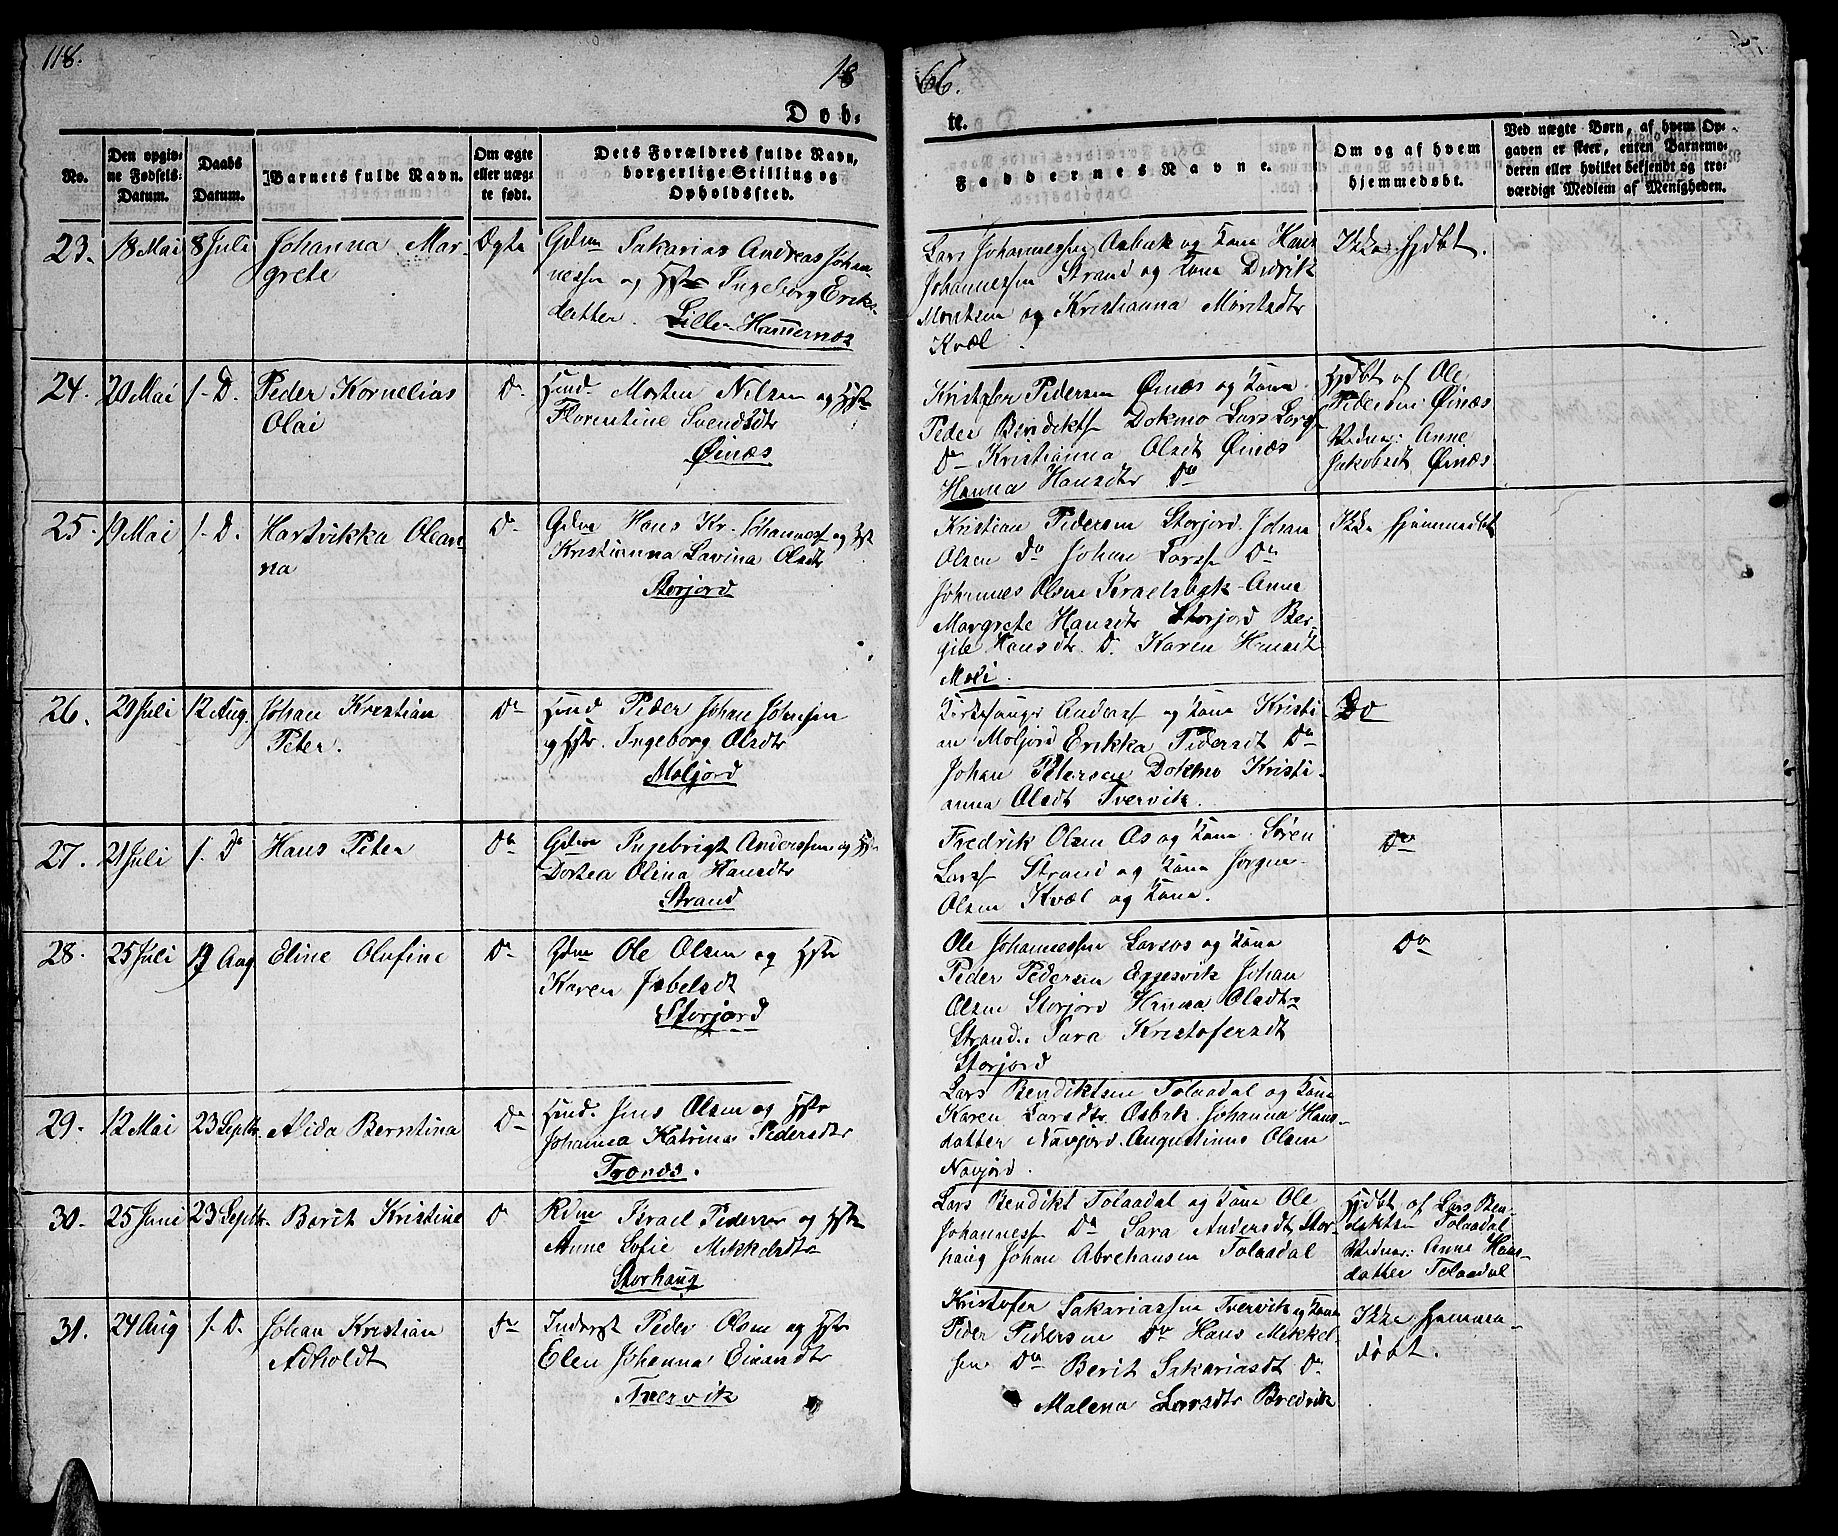 118.
18
66.
Døb-
te.
No.
Den opgiv-
ne Fødsels-
Datum.
Daabs
Datum.
Barnets fulde Navn.
Om ægte
eller uæg-
te født.
Dets Forældres fulde Navn,
borgerlige Stilling og
Opholdssted.
Faddernes Navne.
Om og af hvem
hjemmedøbt.
Ved uægte Børn, af hvem Op-
gaven er skeet, enten Barnemo-
deren eller hvilket bekjendt og tro-
værdigt Medlem af Menigheden.
23.
18 Mai
8 Juli
Johanna Mar-
grete
Ægte
Gdmn Sakarias Andreas Johan-
nessen og Hstr Ingeborg Eriks-
datter. Lille-Hammernæs
Lars Johannessen Aasbak og Kone Hans
Johannessen Strand og Kone Didrik
Mortsen og Kristianna Moritsdtr
Kvæl.
Ikke Hjdbt.
24.
20 Mai
1. D.
Peder Kornelias
Olai
Do
Husmd Morten Nilsen og Hstr
Florentine Svendsdtr
Øinæs
Kristofer Pedersen Øinæs og Kone.
Peder Bendiktsen Dokmo Lars Lars
Do Kristianna Olsdt Øinæs
Hanna Hansdtr Do
Hjdbt af Ole
Pedersen Øinæs
Vidner: Anne
Jakobsdt Øinæs
25.
19 Mai
1. D.
Hartvikka Olean-
na
Do
Gdmn Hans Kr. Johannesf og Hst
Kristianna Lovina Olsdtr
Storjord
Kristian Pedersen Storjord. Johan
Olsen Do Johan Larss Do
Johannes Olsen Israelsbak Anne
Margrete Hansdtr Storjord Ber-
gite Hansdtr. D. Karen Hansdt
Moli.
Ikke hjemmedbt
26.
20 Juli
12 Aug.
Johan Kristian
Peter.
Do
Husmd Peder Johan Johnsen
og Hstr. Ingeborg Olsdtr
Moljord
Kirkesanger Anderss og Kone Kristi-
an Moljord Erikka Pedersdt Do
Johan Petersen Dokmo Kristi-
anna Olsdt Tvervik.
Do
27.
21 Juli
1. Do
Hans Peter
Do
Gdmn Ingebrigt Anderssen og H
Dortea Olina Hansdtr
Strand
Fredrik Olsen As og Kone. Søren
Larss Strand og Kone Jørgen
Olsen Kvæl og Kone.
Do
28.
25 Juli
19 Aug
Eline Olufine
Do
Gdmn Ole Olsen og Hstr
Karen Jobelsdt
Storjord
Ole Johannessen Larsos og Kone
Peder Pedersen Eggesvik Johan
Olsen Storjord Hanna Olsdtr
Strand. Sara Kristofersdt
Storjord
Do
29.
12 Mai
23 Septbr.
Alida Berntina
Do
Husmd. Jens Olsen og Hstr
Johanna Katrina Pedersdtr
Tronæs.
Lars Bendiktsen Tolaadal og Kone
Karen Larsdtr Aasbak. Johanna Hans-
datter Navjord. Augustinus Olsen
Navjord.
30.
25 Juni
23 Septbr.
Berit Kristine
Do
Rdmn Israel Pedersen og Hstr
Anne Sofie Mikkelsdtr
Storhaug
Lars Bendikt Tolaadal og Kone Ole
Johanness Do Sara Andersdt Stor-
haug Johan Abrehamsen Tolaadal
Hjdbt af Lars Ben-
diktsen Tolaadal
Vidner: Anne Hans-
datter Tolaadal
31.
24 Aug
1. D.
Johan Kristian
Adholdt
Do
Inderst Peder Olsen og Hstr
Elen Johanna Einarsdtr
Tversvik
Kristofer Sakariassen Tvervik og Kone
Peder Pedersen Do Hans Mikkel-
sen Do Berit Sakariasdt Do
Malena Larsdtr Bredvik
Ikke hjemme-
døbt.